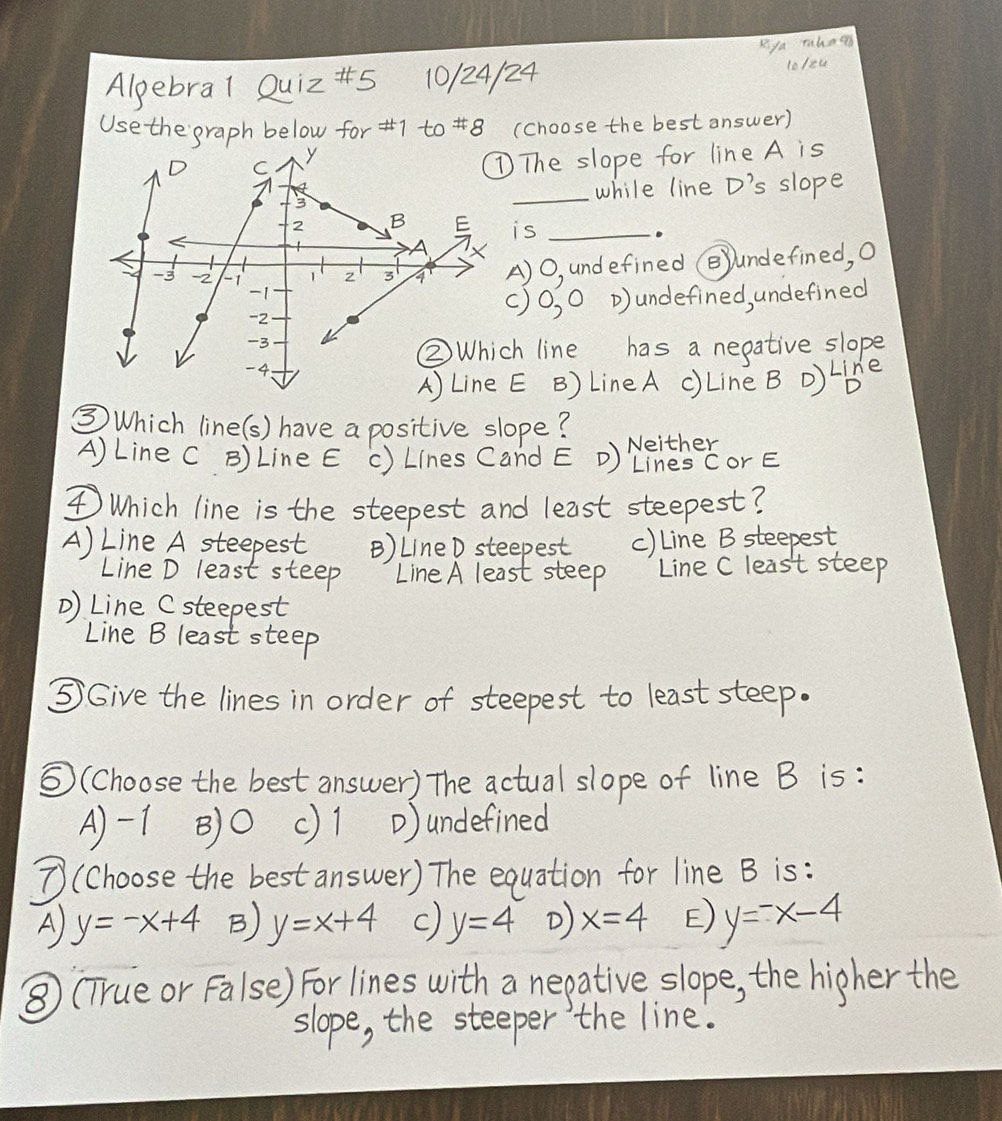 10/24
Algebra 1 Quiz #5 10/24/24
Use the graph below for #1 to #8 (Choose the best answer)
D C y
4
3
2
1
B E
A x
-4 -3 -2 -1 1 2 3 4
-1
-2
-3
-4
① The slope for line A is
____ while line D's slope
is ____.
A) 0, undefined B) undefined, 0
C) 0, 0 D) undefined, undefined
② Which line has a negative slope
A) Line E B) Line A C) Line B D) Line D
③ Which line(s) have a positive slope?
A) Line C B) Line E C) Lines C and E D) Neither Lines C or E
④ Which line is the steepest and least steepest?
A) Line A steepest B) Line D steepest C) Line B steepest
Line D least steep Line A least steep Line C least steep
D) Line C steepest
Line B least steep
⑤ Give the lines in order of steepest to least steep.
⑥ (Choose the best answer) The actual slope of line B is:
A) -1 B) 0 C) 1 D) undefined
⑦ (Choose the best answer) The equation for line B is:
A) y=-x+4 B) y=x+4 C) y=4 D) x=4 E) y=-x-4
⑧ (True or False) For lines with a negative slope, the higher the
slope, the steeper the line.